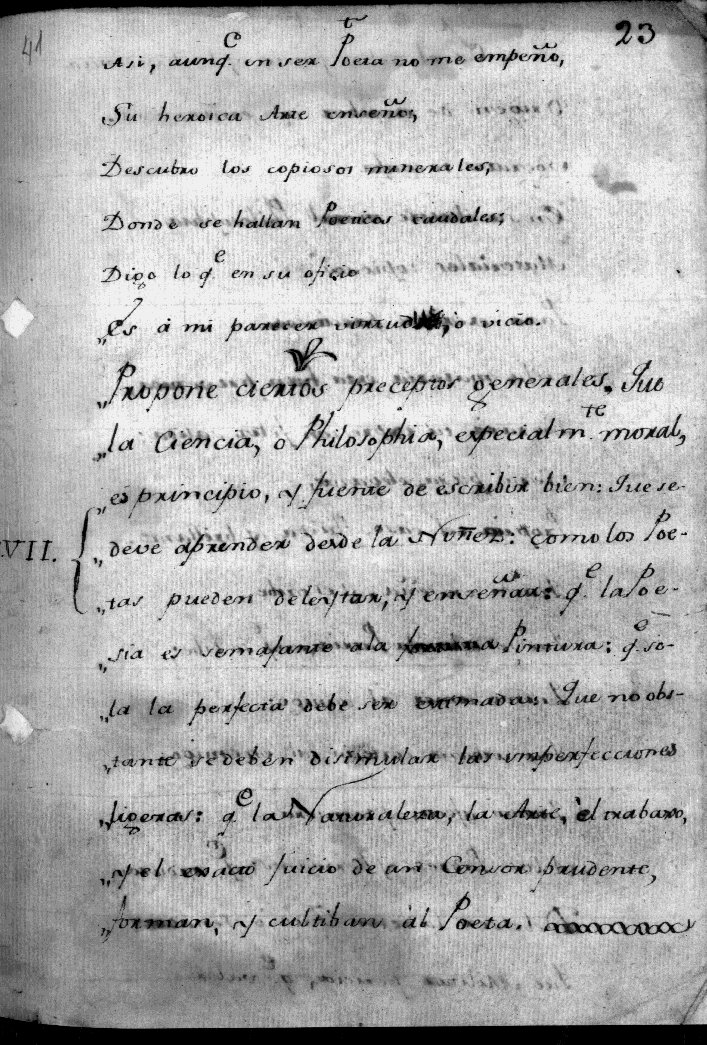 41
23
Asi, aunq.e en ser Poeta no me empeño,
Su heroica Arte enseño;
Descubro los copiosos minerales,
Donde se hallan Poeticos caudales;
Digo lo q.e en su oficio
„Es á mi parecer virtud, ó vicio.
„Propone ciertos preceptos generales. Que
„la Ciencia, o Philosophia, especialm.te moral,
„es principio, y fuente de escribir bien: Que se
VII. „deve aprender desde la Nuñez: como los Poe-
„tas pueden deleytar, y enseñar: q.e la Poe-
„sia es semajante a la Pintura: q.e so-
„la la perfecta debe ser extmada: Que no obs-
„tante se deben disimular las imperfecciones
„ligeras: q.e la Naturaleza, la Arte, el trabaxo,
„y el exacto juicio de un Censor prudente,
„forman, y cultiban al Poeta.